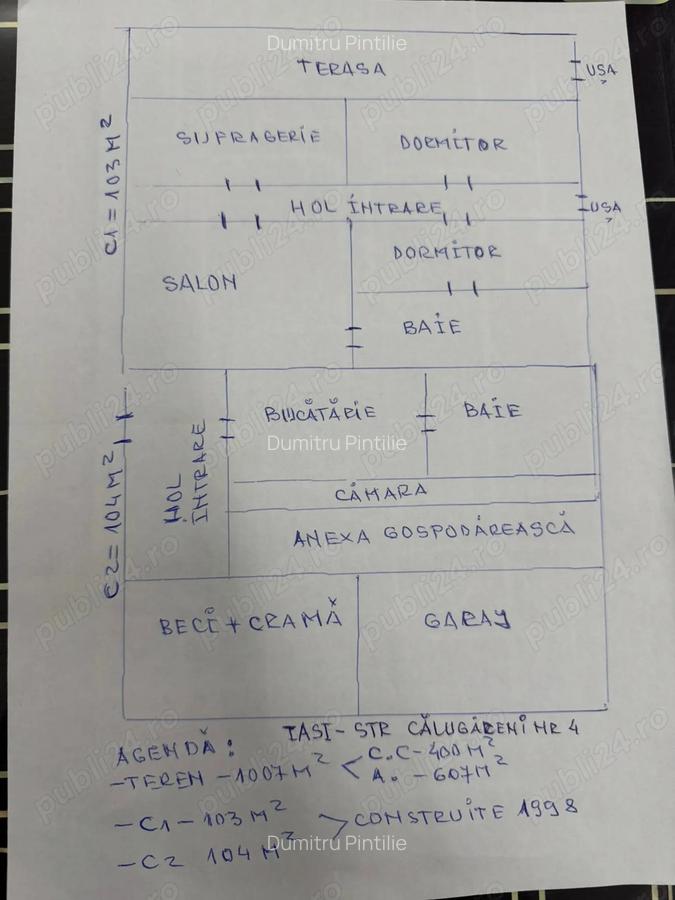 Dumitru Pintilie
TERASA
USA
C1 = 103 M²
SUFRAGERIE
DORMITOR
HOL INTRARE
USA
SALON
DORMITOR
BAIE
C2 = 104 M²
HOL INTRARE
BUCĂTĂRIE
BAIE
Dumitru Pintilie
CĂMARA
ANEXA GOSPODĂREASCĂ
BECI + CRAMĂ
GARAJ
IASI - STR CĂLUGĂRENI NR 4
AGENDĂ:
- TEREN - 1007 M² < C.C - 400 M²
A. - 607 M²
- C1 - 103 M²
> CONSTRUITE 1998
- C2 104 M²
Dumitru Pintilie
publi24.ro